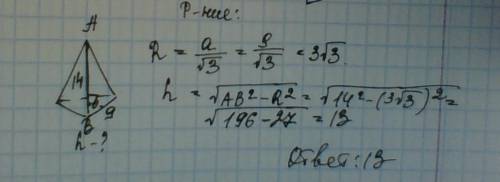 Р-ние:
A
14
9
B
h-?
R = a/√3 = 9/√3 = 3√3
h = √(AB² - R²) = √(14² - (3√3)²) =
√(196 - 27) = 13
Ответ: 13